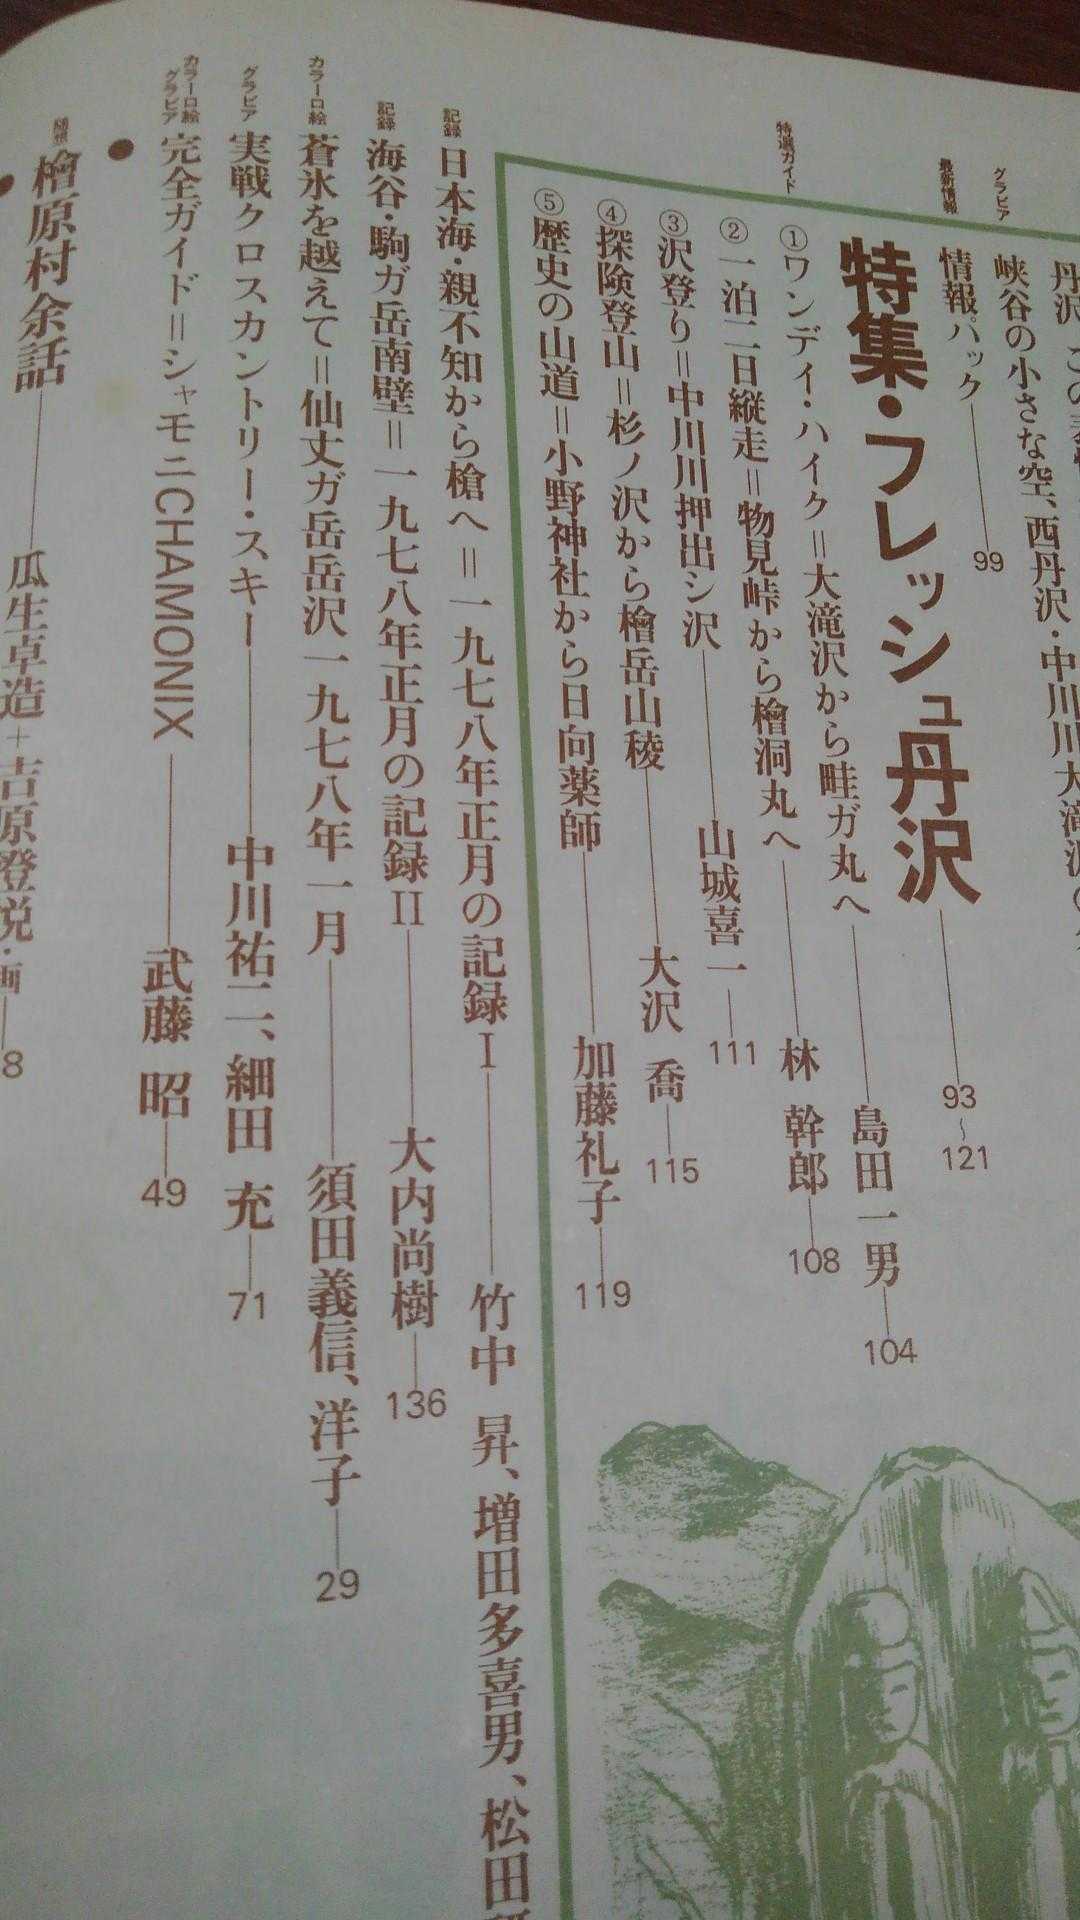 グラビア
峡谷の小さな空、西丹沢・中川川大滝沢の
最新情報
情報パック 99
特集・フレッシュ丹沢 93〜121
特選ガイド
①ワンデイ・ハイク＝大滝沢から畦ガ丸へ 島田一男 104
②一泊二日縦走＝物見峠から檜洞丸へ 林 幹郎 108
③沢登り＝中川川押出シ沢 山城喜一 111
④探険登山＝杉ノ沢から檜岳山稜 大沢 喬 115
⑤歴史の山道＝小野神社から日向薬師 加藤礼子 119
記録 日本海・親不知から槍へ＝一九七八年正月の記録Ⅰ 竹中 昇、増田多喜男、松田
記録 海谷・駒ガ岳南壁＝一九七八年正月の記録Ⅱ 大内尚樹 136
カラー口絵 蒼氷を越えて＝仙丈ガ岳岳沢一九七八年一月 須田義信、洋子 29
グラビア 実戦クロスカントリー・スキー 中川祐二、細田 充 71
カラー口絵
グラビア 完全ガイド＝シャモニCHAMONIX 武藤 昭 49
●
随想 檜原村余話 瓜生卓造＋吉原澄悦・画 8